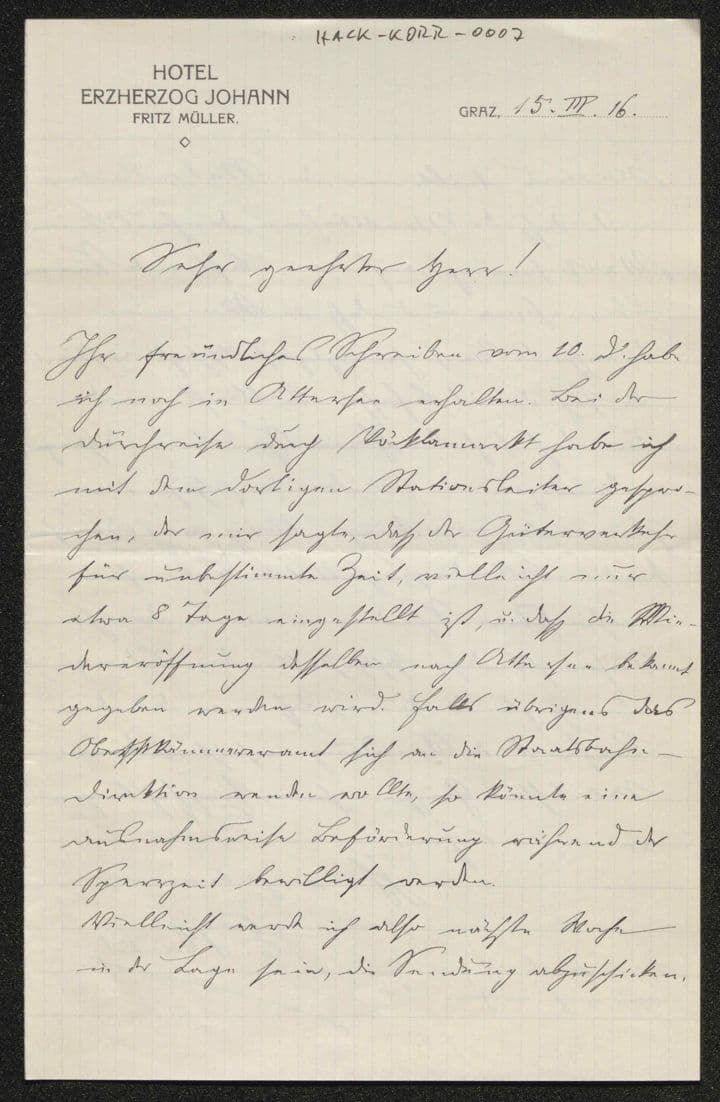 HACK-KORR-0007
HOTEL
ERZHERZOG JOHANN
FRITZ MÜLLER.
GRAZ, 15. III. 16.
Sehr geehrter Herr!
Ihr freundliches Schreiben vom 10. d. habe
ich noch in Attersee erhalten. Bei der
Durchreise durch Vöcklamarkt habe ich
mit dem dortigen Stationsleiter gespro-
chen, der mir sagte, daß der Güterverkehr
für unbestimmte Zeit, vielleicht nur
etwa 8 Tage eingestellt ist, u. daß die Wie-
dereröffnung desselben nach Attersee bekannt
gegeben werden wird. Falls übrigens das
Oberstkämmereramt sich an die Staatsbahn-
direktion wenden wollte, so könnte eine
ausnahmsweise Beförderung während der
Sperrzeit bewilligt werden.
Vielleicht werde ich also nächste Woche
in der Lage sein, die Sendung abzuschicken.